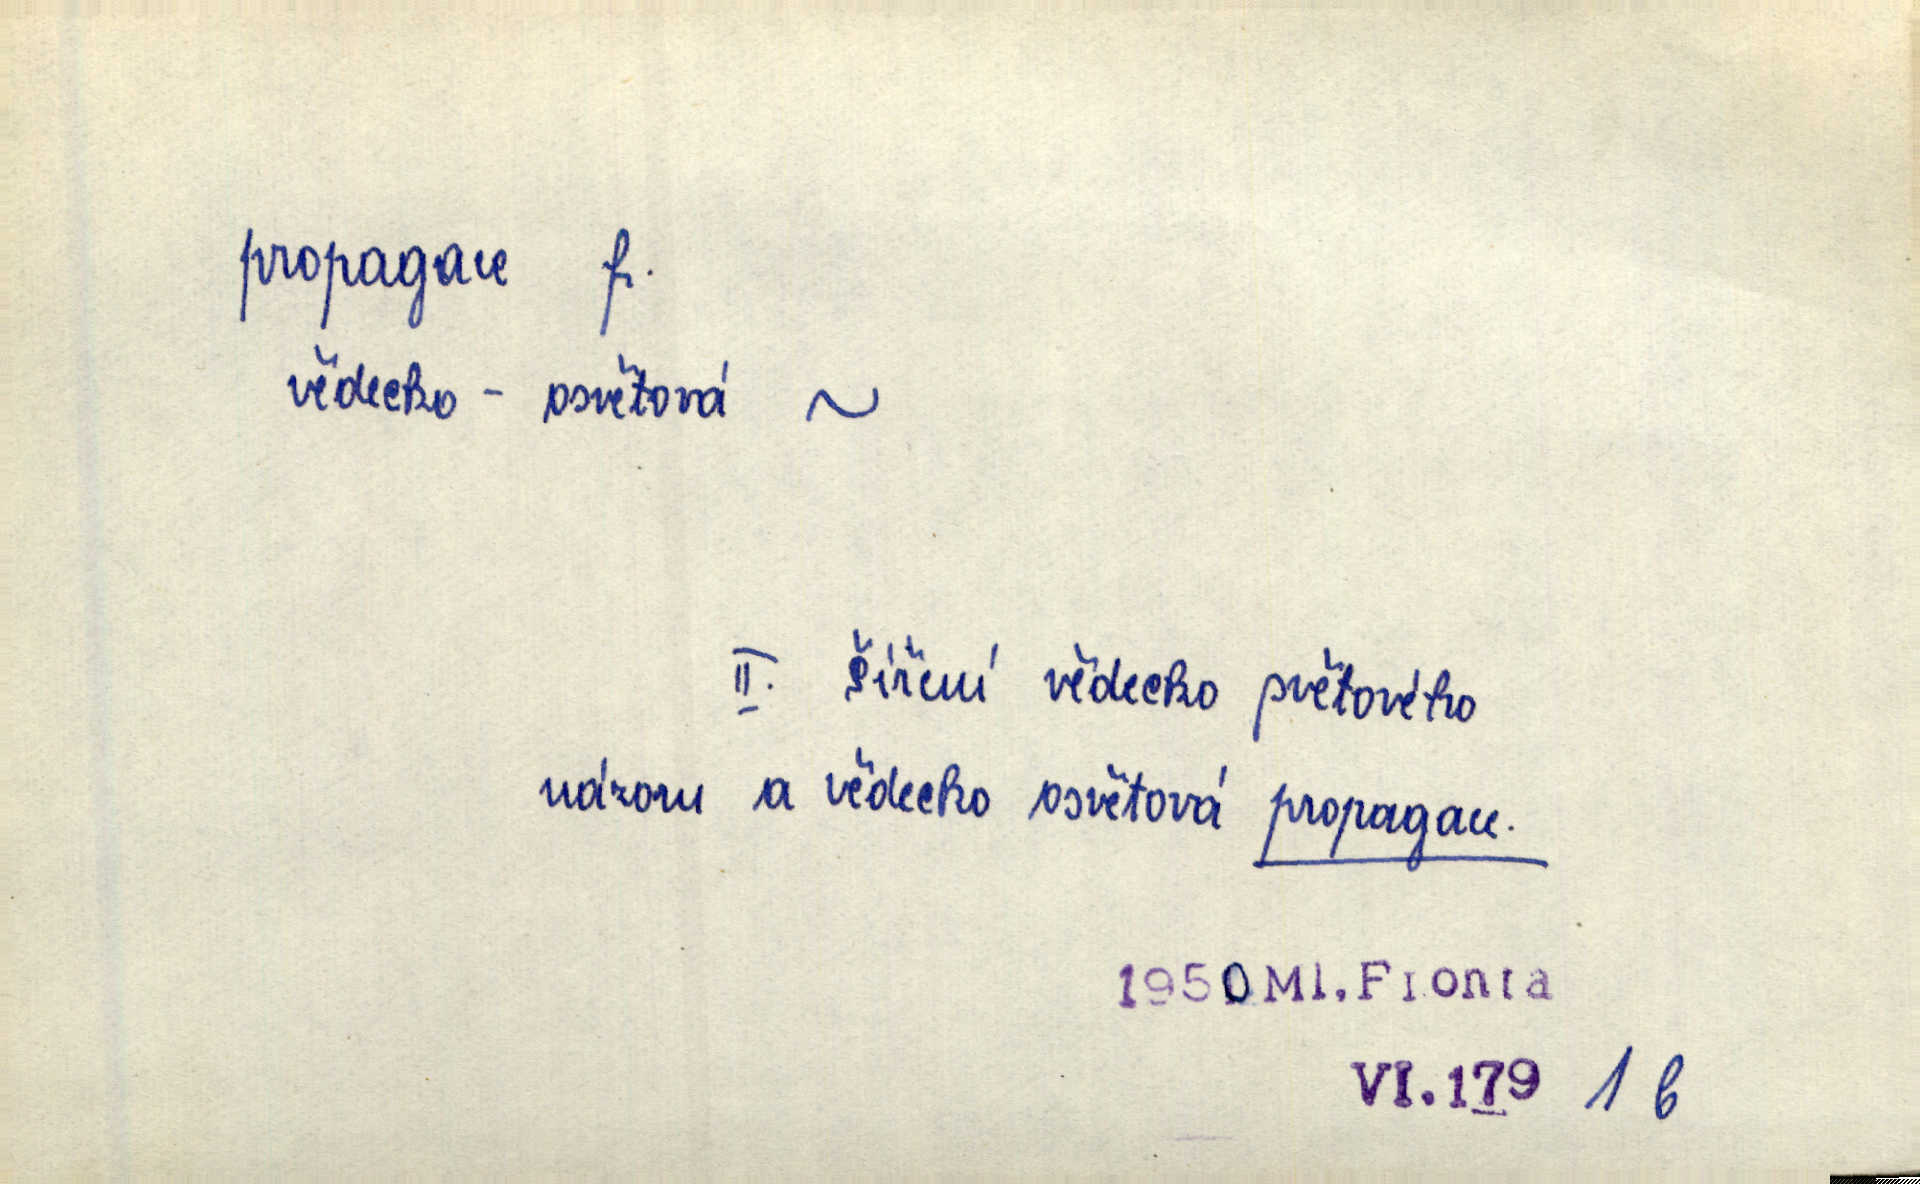 propagace f.
vědecko - osvětová ~
II. Šíření vědecko světového
názoru a vědecko osvětová propagace.
1950 Ml. Fronta
VI.179 1 b